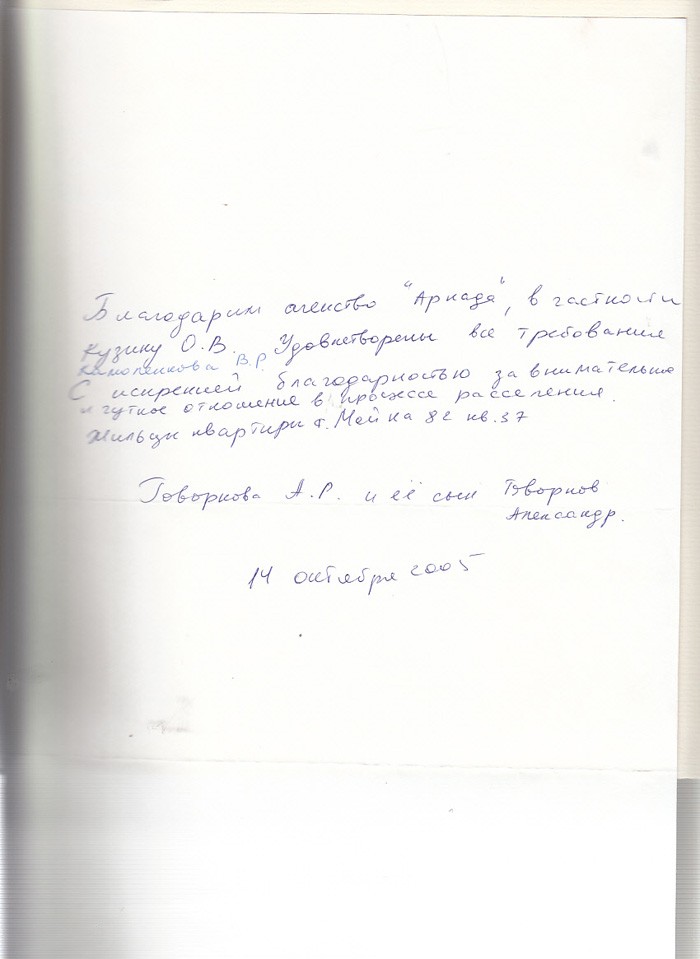 Благодарим агенство "Аркада", в частности
Кузину О.В. Удовлетворены все требования
В.Р.
С искренней благодарностью за внимательно
и чуткое отношение в процессе расселения.
Жильцы квартиры 82 кв. 37
Говоркова А.Р. и её сын Говорков
Александр.
14 октября 2005